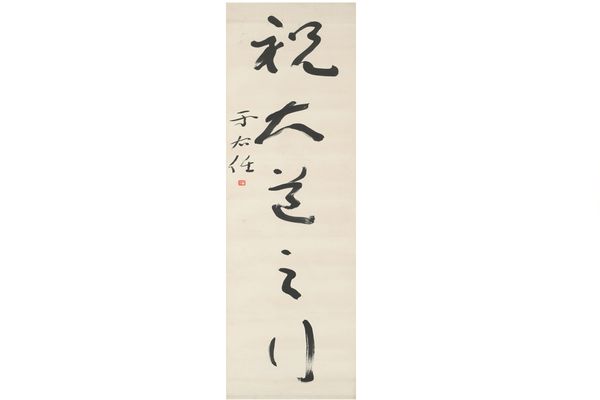 祝大道之行
于右任